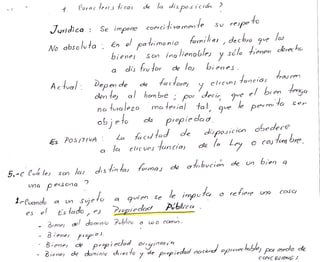 4. Características de la disposición ?
Jurídica : Se impone coercitivamente su respeto
No absoluta : En el patrimonio familiar, declara que los
bienes son inalienables y sólo tienen derecho
a disfrutar de los bienes.
Actual : Depende de factores y circunstancias trascen
dentes al hombre ; por decir, que el bien tenga
naturaleza material tal, que le permita ser
objeto de propiedad.
Es POSITIVA : La facultad de disposición obedece
a la circunstancias de la Ley o costumbre.
5.-¿ Cuáles son las distintas formas de atribución de un bien a
una persona ?
1.-Cuando a un sujeto a quien se le imputa o refiere una cosa
es el Estado, es Propiedad Pública.
- Bienes del dominio Público o uso común.
- Bienes propios.
- Bienes de propiedad originaria
- Bienes de dominio directo y de propiedad nacional aprovechables por medio de
concesiones